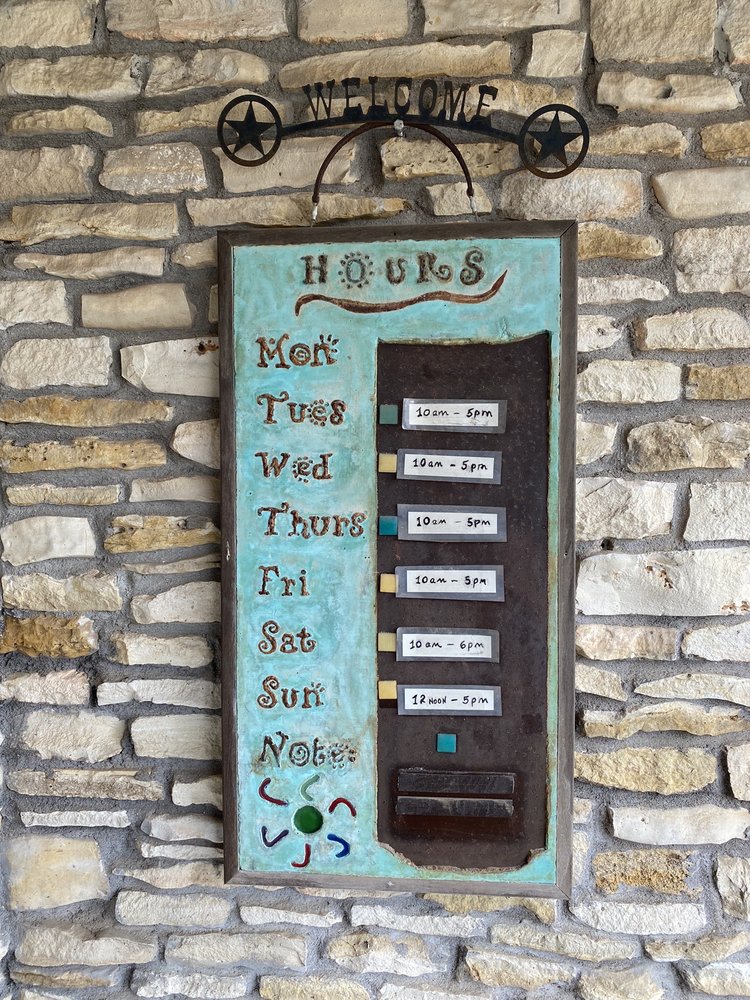 WELCOME
HOURS
Mon
Tues 10am - 5pm
Wed 10am - 5pm
Thurs 10am - 5pm
Fri 10am - 5pm
Sat 10am - 6pm
Sun 12 NOON - 5pm
Note: